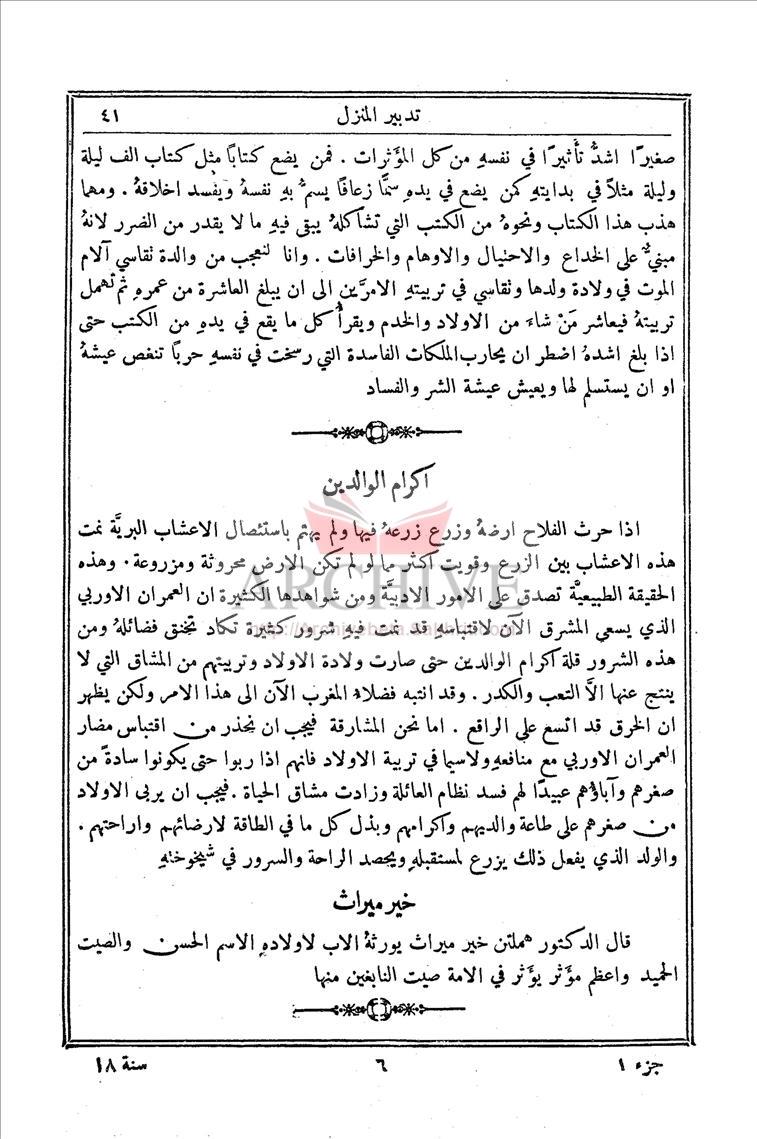 تدبير المنزل ٤١
صغيرًا اشدُّ تأثيرًا في نفسهِ من كل المؤثرات . فمن يضع كتابًا مثل كتاب الف ليلة
وليلة مثلاً في بدايتهِ كمن يضع في يدهِ سمًّا زعافًا يسمُّ بهِ نفسهُ ويفسد اخلاقهُ . ومهما
هذب هذا الكتاب ونحوهُ من الكتب التي تشاكلهُ يبقى فيهِ ما لا يقدر من الضرر لانهُ
مبنيٌّ على الخداع والاحتيال والاوهام والخرافات . وانا لنعجب من والدة تقاسي آلام
الموت في ولادة ولدها وتقاسي في تربيتهِ الامرَّين الى ان يبلغ العاشرة من عمرهِ ثم تهمل
تربيتهُ فيعاشر مَنْ شاءَ من الاولاد والخدم ويقرأُ كل ما يقع في يدهِ من الكتب حتى
اذا بلغ اشدهُ اضطر ان يحارب الملكات الفاسدة التي رسخت في نفسهِ حربًا تنغص عيشهُ
او ان يستسلم لها ويعيش عيشة الشر والفساد
اكرام الوالدين
اذا حرث الفلاح ارضهُ وزرع زرعهُ فيها ولم يهتم باستئصال الاعشاب البريَّة نمت
هذه الاعشاب بين الزرع وقويت اكثر مما لو لم تكن الارض محروثة ومزروعة . وهذه
الحقيقة الطبيعيَّة تصدق على الامور الادبيَّة ومن شواهدها الكثيرة ان العمران الاوربي
الذي يسعى المشرق الآن لاقتباسهِ قد نمت فيهِ شرور كثيرة تكاد تخنق فضائلهُ ومن
هذه الشرور قلة اكرام الوالدين حتى صارت ولادة الاولاد وتربيتهم من المشاق التي لا
ينتج عنها الاَّ التعب والكدر . وقد انتبه فضلاءُ المغرب الآن الى هذا الامر ولكن يظهر
ان الخرق قد اتسع على الراقع . اما نحن المشارقة فيجب ان نحذر من اقتباس مضار
العمران الاوربي مع منافعهِ ولاسيما في تربية الاولاد فانهم اذا ربوا حتى يكونوا سادةً من
صغرهم وآباؤُهم عبيدًا لهم فسد نظام العائلة وزادت مشاق الحياة . فيجب ان يربى الاولاد
من صغرهم على طاعة والديهم واكرامهم وبذل كل ما في الطاقة لارضائهم واراحتهم .
والولد الذي يفعل ذلك يزرع لمستقبلهِ ويحصد الراحة والسرور في شيخوختهِ
خير ميراث
قال الدكتور هملتن خير ميراث يورثهُ الاب لاولادهِ الاسم الحسن والصيت
الحميد واعظم مؤَثر يؤَثر في الامة صيت النابغين منها
جزء ١ ٦ سنة ١٨
ARCHIVE